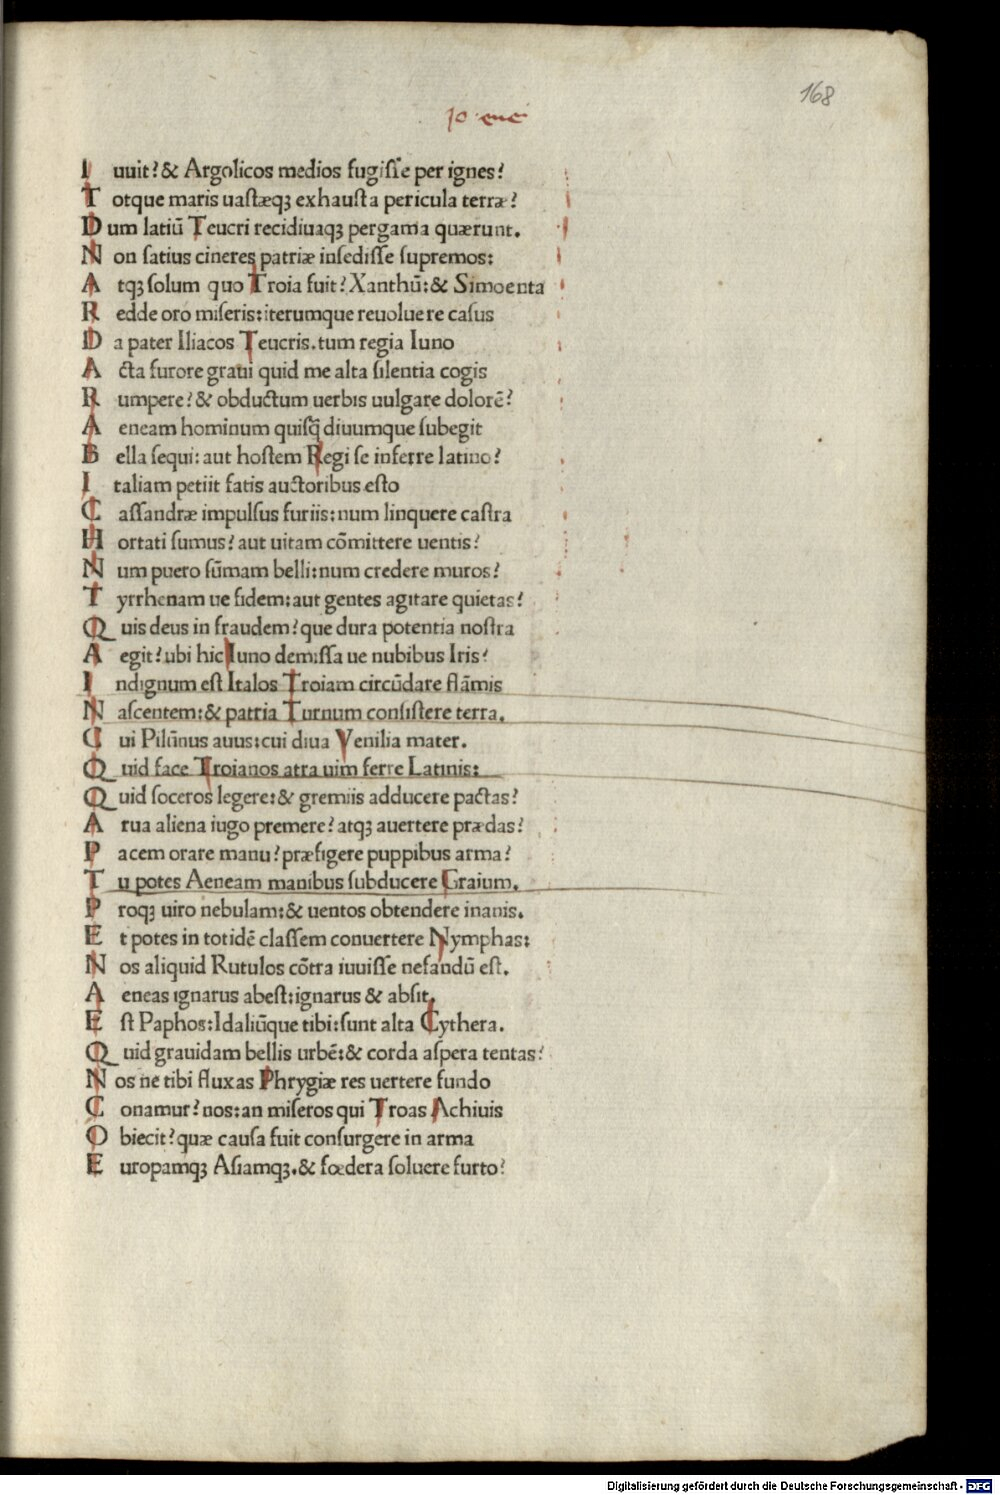 168
10 ene
I uuit? & Argolicos medios fugiſſe per ignes?
T otque maris uaſtæqꝫ exhauſta pericula terræ?
D um latiū Teucri recidiuaqꝫ pergama quærunt.
N on ſatius cineres patriæ inſediſſe ſupremos:
A tqꝫ ſolum quo Troia fuit? Xanthū: & Simoenta
R edde oro miſeris: iterumque reuoluere caſus
D a pater Iliacos Teucris. tum regia Iuno
A cta furore graui quid me alta ſilentia cogis
R umpere? & obductum uerbis uulgare dolorē?
A eneam hominum quiſq̄ diuumque ſubegit
B ella ſequi: aut hoſtem Regi ſe inferre latino?
I taliam petiit fatis auctoribus eſto
C aſſandræ impulſus furiis: num linquere caſtra
H ortati ſumus? aut uitam cōmittere uentis?
N um puero ſūmam belli: num credere muros?
T yrrhenam ue fidem: aut gentes agitare quietas?
Q uis deus in fraudem? que dura potentia noſtra
A egit? ubi hic Iuno demiſſa ue nubibus Iris?
I ndignum eſt Italos Troiam circūdare flāmis
N aſcentem: & patria Turnum conſiſtere terra.
C ui Pilūnus auus: cui diua Venilia mater.
Q uid face Troianos atra uim ferre Latinis:
Q uid ſoceros legere: & gremiis adducere pactas?
A rua aliena iugo premere? atqꝫ auertere prædas?
P acem orare manu? præfigere puppibus arma?
T u potes Aeneam manibus ſubducere Graium.
P roqꝫ uiro nebulam: & uentos obtendere inanis.
E t potes in totidē claſſem conuertere Nymphas:
N os aliquid Rutulos cōtra iuuiſſe nefandū eſt.
A eneas ignarus abeſt: ignarus & abſit.
E ſt Paphos: Idaliūque tibi: ſunt alta Cythera.
Q uid grauidam bellis urbē: & corda aſpera tentas?
N os ne tibi fluxas Phrygiæ res uertere fundo
C onamur? nos: an miſeros qui Troas Achiuis
O biecit? quæ cauſa fuit conſurgere in arma
E uropamqꝫ Aſiamqꝫ. & fœdera ſoluere furto?
Digitalisierung gefördert durch die Deutsche Forschungsgemeinschaft - DFG